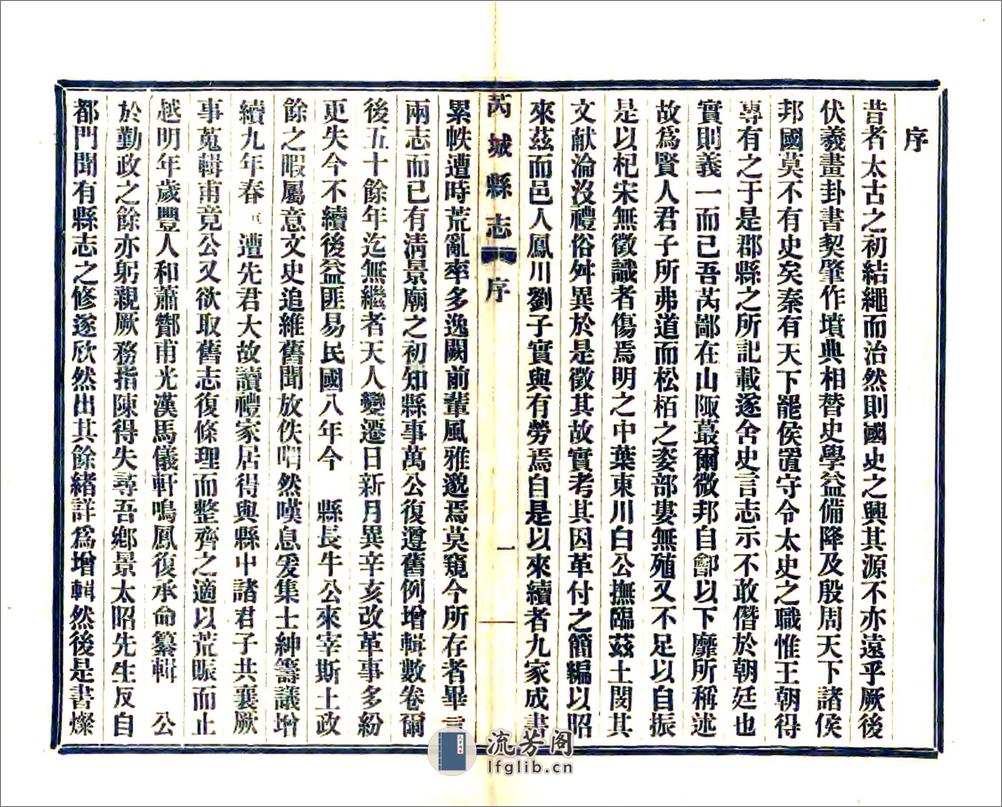 序
昔者太古之初結繩而治然則國史之興其源不亦遠乎厥後
伏羲畫卦書契肇作墳典相替史學益備降及殷周天下諸侯
邦國莫不有史矣秦有天下罷侯置守令太史之職惟王朝得
專有之于是郡縣之所記載遂舍史言志示不敢僭於朝廷也
實則義一而已吾芮鄙在山陬蕞爾微邦自鄶以下靡所稱述
故爲賢人君子所弗道而松栢之姿部婁無殖又不足以自振
是以杞宋無徵識者傷焉明之中葉東川白公撫臨茲土閔其
文献淪沒禮俗舛異於是徵其故實考其因革付之簡編以昭
來茲而邑人鳳川劉子實與有勞焉自是以來續者九家成書
芮城縣志 序 一
累帙遭時荒亂率多逸闕前輩風雅邈焉莫窺今所存者畢言
兩志而已有淸景廟之初知縣事萬公復遵舊例增輯數卷爾
後五十餘年迄無繼者天人變遷日新月異辛亥改革事多紛
更失今不續後益匪易民國八年今 縣長牛公來宰斯土政
餘之暇屬意文史追維舊聞放佚喟然嘆息爰集士紳籌議增
續九年春 遭先君大故讀禮家居得與縣中諸君子共襄厥
事蒐輯甫竟公又欲取舊志復條理而整齊之適以荒賑而止
越明年歲豐人和蕭酇甫光漢馬儀軒鳴鳳復承命纂輯 公
於勤政之餘亦躬親厥務指陳得失尋吾鄉景太昭先生反自
都門聞有縣志之修遂欣然出其餘緒詳爲增輯然後是書燦
流芳阁
lfglib.cn